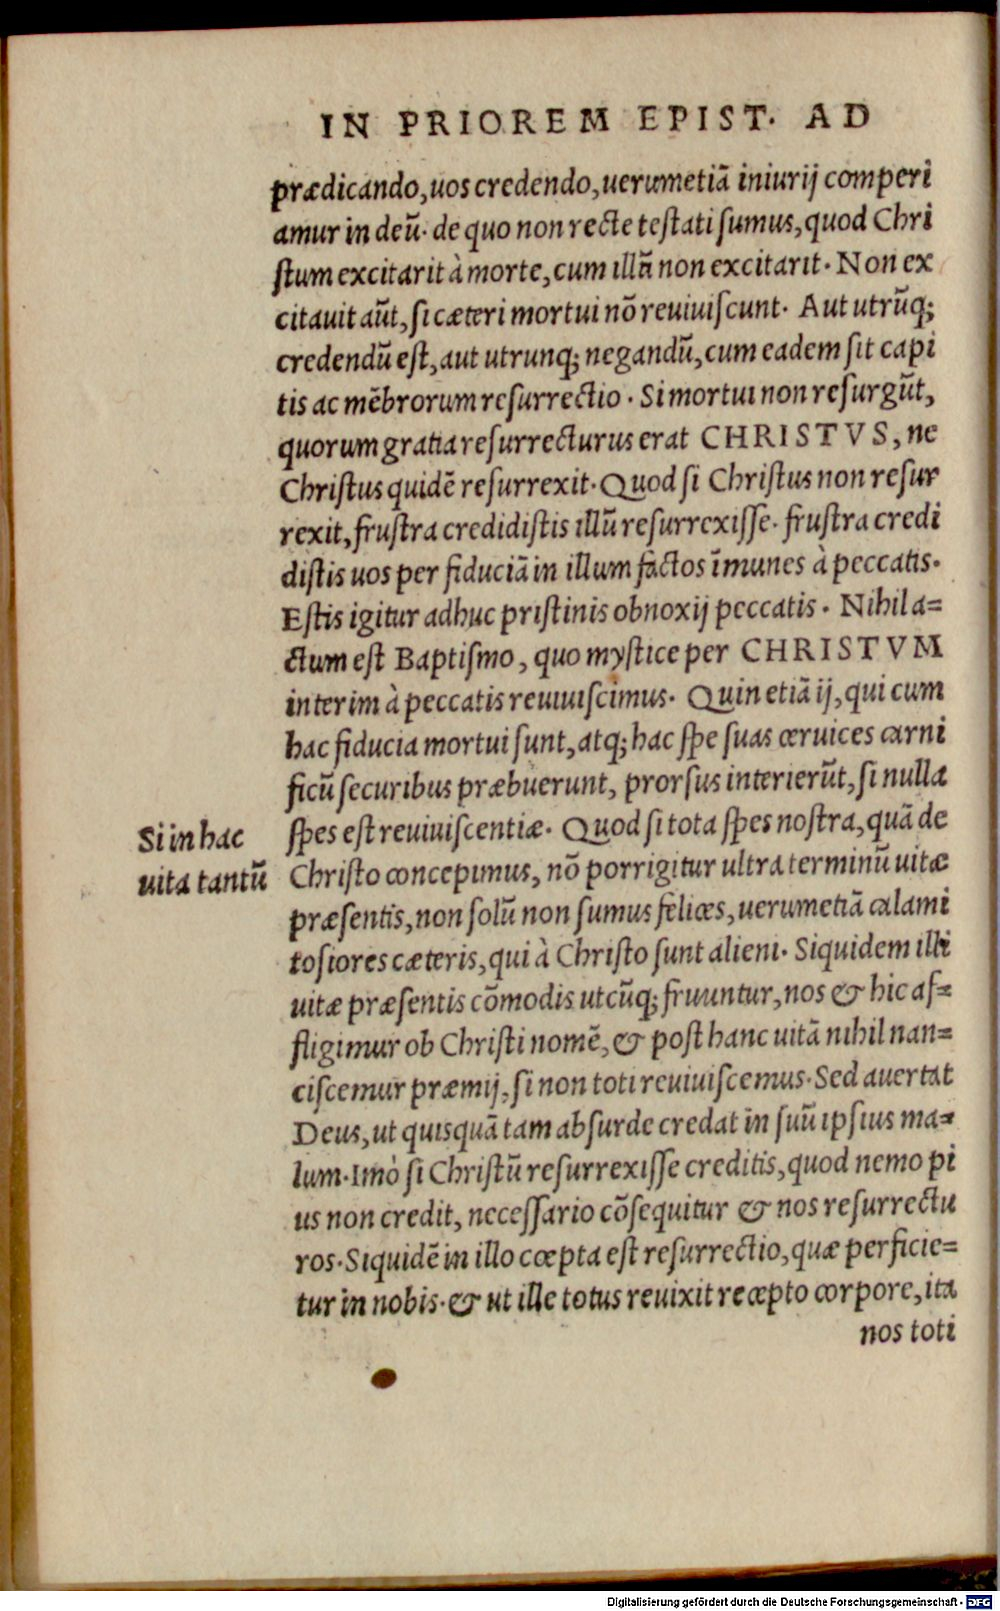 IN PRIOREM EPIST. AD
prædicando, uos credendo, uerumetiã iniurij comperi
amur in deũ. de quo non recte testati sumus, quod Chri
stum excitarit à morte, cum illũ non excitarit. Non ex
citauit aũt, si cæteri mortui nõ reuiuiscunt. Aut utrũq;
credendũ est, aut utrunq; negandũ, cum eadem sit capi
tis ac mẽbrorum resurrectio. Si mortui non resurgũt,
quorum gratia resurrecturus erat CHRISTVS, ne
Christus quidẽ resurrexit. Quod si Christus non resur
rexit, frustra credidistis illũ resurrexisse. frustra credi
distis uos per fiduciã in illum factos ĩmunes à peccatis.
Estis igitur adhuc pristinis obnoxij peccatis. Nihil a=
ctum est Baptismo, quo mystice per CHRISTVM
interim à peccatis reuiuiscimus. Quin etiã ij, qui cum
hac fiducia mortui sunt, atq; hac spe suas ceruices carni
ficũ securibus præbuerunt, prorsus interierũt, si nulla
spes est reuiuiscentiæ. Quod si tota spes nostra, quã de
Si in hac
uita tantũ
Christo concepimus, nõ porrigitur ultra terminũ uitæ
præsentis, non solũ non sumus felices, uerumetiã calami
tosiores cæteris, qui à Christo sunt alieni. Siquidem illi
uitæ præsentis cõmodis utcũq; fruuntur, nos & hic af=
fligimur ob Christi nomẽ, & post hanc uitã nihil nan=
ciscemur præmij, si non toti reuiuiscemus. Sed auertat
Deus, ut quisquã tam absurde credat in suũ ipsius ma=
lum. Imò si Christũ resurrexisse creditis, quod nemo pi
us non credit, necessario cõsequitur & nos resurrectu
ros. Siquidẽ in illo cœpta est resurrectio, quæ perficie=
tur in nobis. & ut ille totus reuixit recepto corpore, ita
nos toti
Digitalisierung gefördert durch die Deutsche Forschungsgemeinschaft - DFG